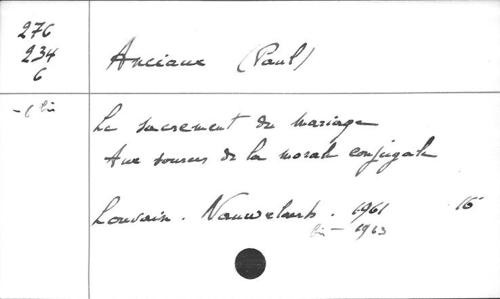 276
234
6
Anciaux (Paul)
- 6 bis
Le sacrement du mariage
Aux sources de la morale conjugale
Louvain. Nauwelaerts. 1961 16°
bis - 1963